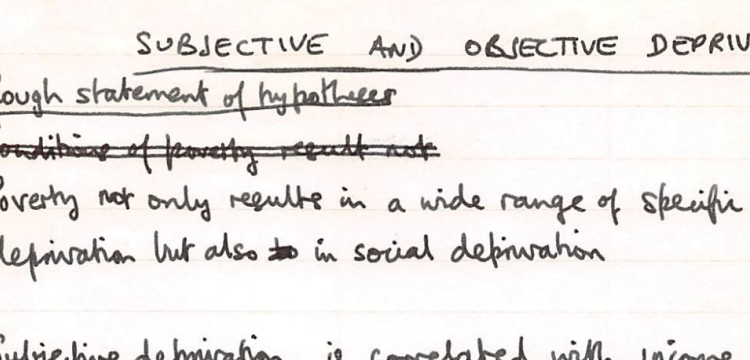 SUBJECTIVE AND OBJECTIVE DEPRIV
ough statement of hypotheses
onditions of poverty result not
overty not only results in a wide range of specific
deprivation but also to in social deprivation
Subjective deprivation is correlated with income